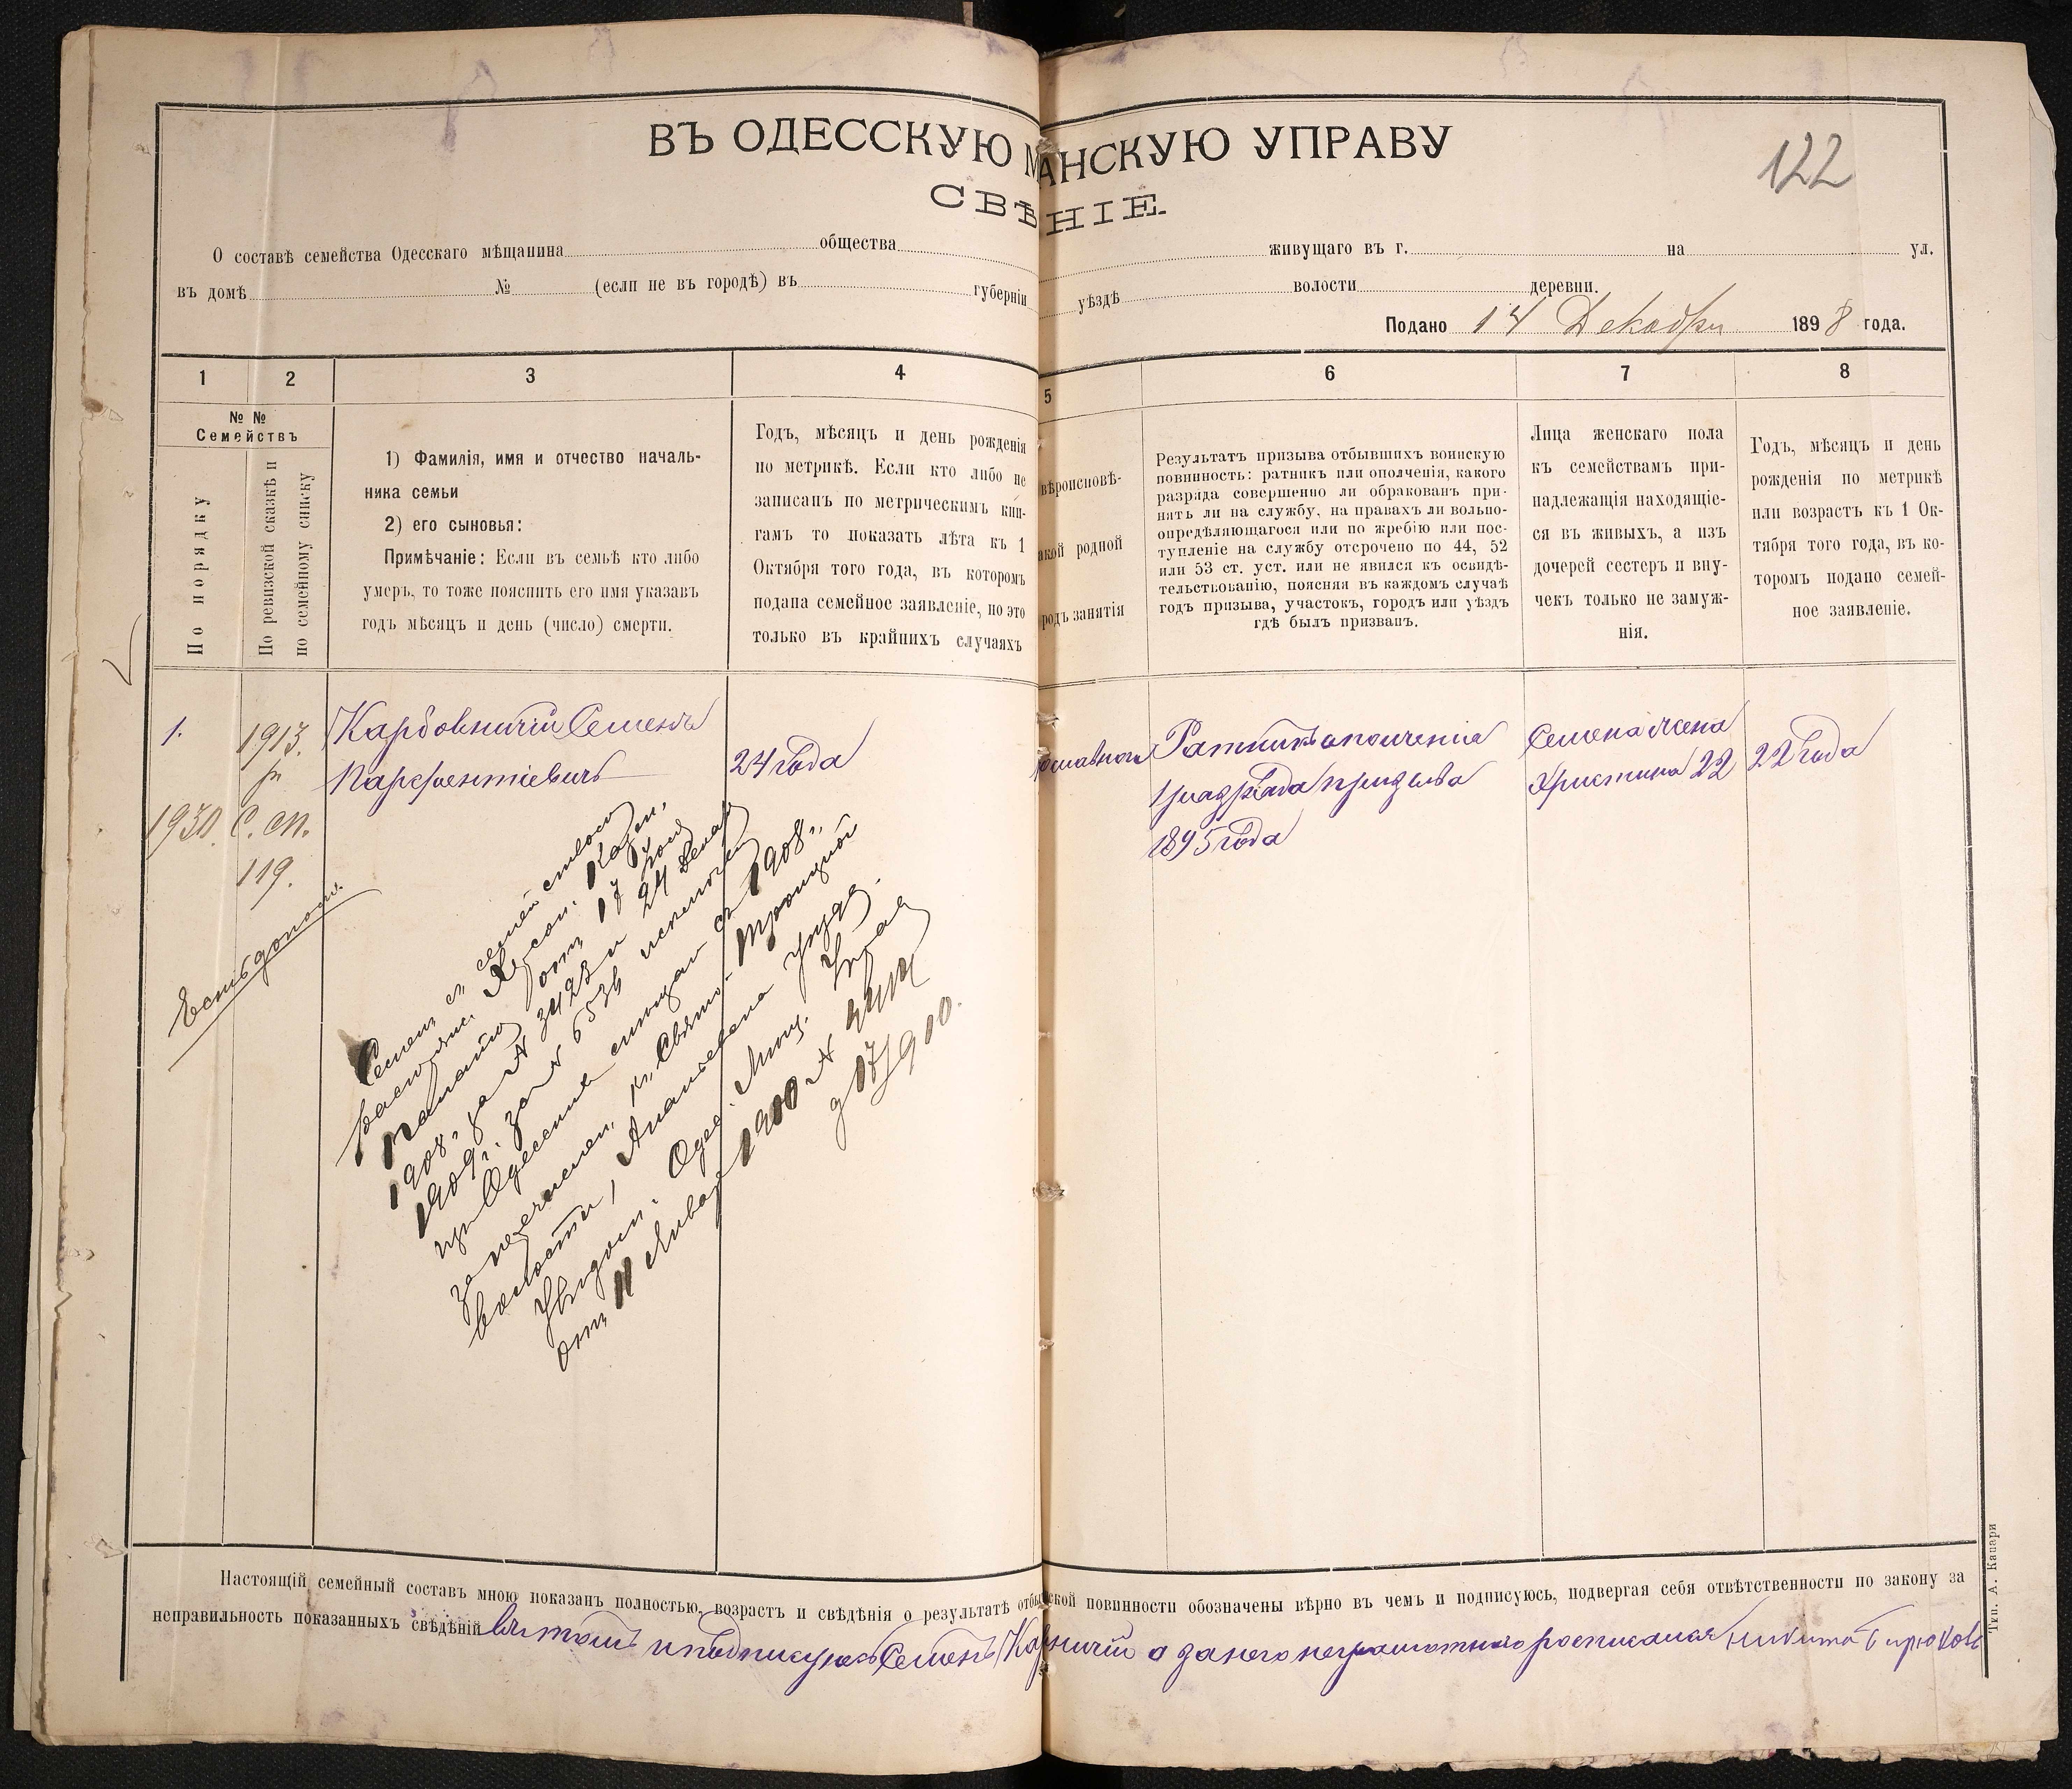 ВЪ ОДЕССКУЮ М АНСКУЮ УПРАВУ
122
СВѢ НІЕ.
О составѣ семейства Одесскаго мѣщанина общества живущаго въ г. на ул.
въ домѣ № (если не въ городѣ) въ губерніи уѣздѣ волости деревни.
Подано 14 Декабря 1898 года.
1 2 3 4 5 6 7 8
№ №
Семействъ
По порядку
По ревизской сказкѣ и
по семейному списку
1) Фамилія, имя и отчество началь-
ника семьи
2) его сыновья:
Примѣчаніе: Если въ семьѣ кто либо
умеръ, то тоже пояснить его имя указавъ
годъ мѣсяцъ и день (число) смерти.
Годъ, мѣсяцъ и день рожденія
по метрикѣ. Если кто либо не
записанъ по метрическимъ кни-
гамъ то показать лѣта къ 1
Октября того года, въ которомъ
подана семейное заявленіе, но это
только въ крайнихъ случаяхъ
вѣроисповѣ-
акой родной
родъ занятія
Результатъ призыва отбывшихъ воинскую
повинность: ратникъ или ополченія, какого
разряда совершенно ли обракованъ при-
нятъ ли на службу, на правахъ ли вольно-
опредѣляющагося или по жребію или пос-
тупленіе на службу отсрочено по 44, 52
или 53 ст. уст. или не явился къ освидѣ-
тельствованію, поясняя въ каждомъ случаѣ
годъ призыва, участокъ, городъ или уѣздъ
гдѣ былъ призванъ.
Лица женскаго пола
къ семействамъ при-
надлежащія находящіе-
ся въ живыхъ, а изъ
дочерей сестеръ и вну-
чекъ только не замуж-
нія.
Годъ, мѣсяцъ и день
рожденія по метрикѣ
или возрастъ къ 1 Ок-
тября того года, въ ко-
торомъ подано семей-
ное заявленіе.
1.
1913.
1930. С. сп.
119.
Карбовничій Семенъ
Парфентіевичъ
24 года
Ратникъ ополченія
1 разряда призыва
1895 года
Семена жена
Христина 22
22 года
Есть дополн.
Семенъ съ семействомъ
распоряж. Херсон. Казен.
Палаты отъ 17 Іюля
1908 г. за № 3423 и 24 Декаб
1909 г. за № 6536 исключенъ
изъ Одесскихъ мѣщан съ 1908 г.
зачислен. къ Свято-Троицкой
волости, Ананьевскаго уѣзда.
Увѣдомл. Одес. Мѣщ. Управ
отъ 11 Январ 1900 №
д 17/900.
Настоящій семейный составъ мною показанъ полностью, возрастъ и свѣдѣнія о результатѣ отбы нской повинности обозначены вѣрно въ чемъ и подписуюсь, подвергая себя отвѣтственности по закону за
неправильность показанныхъ свѣдѣній вътомъ иподписуюсь Семенъ Кар вничій а занего неграмотнаго росписался Никита Бирюковъ
Тип. А. Капари